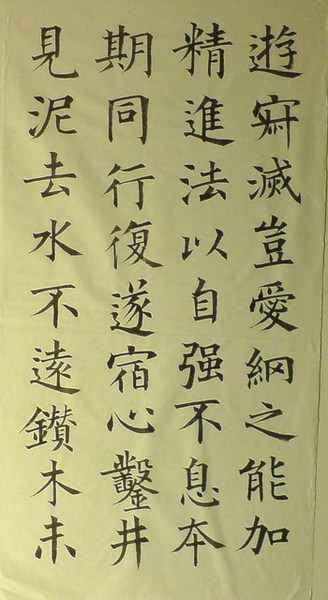 遊寂滅豈愛網之能加
精進法以自强不息本
期同行復遂宿心鑿井
見泥去水不遠鑚木未